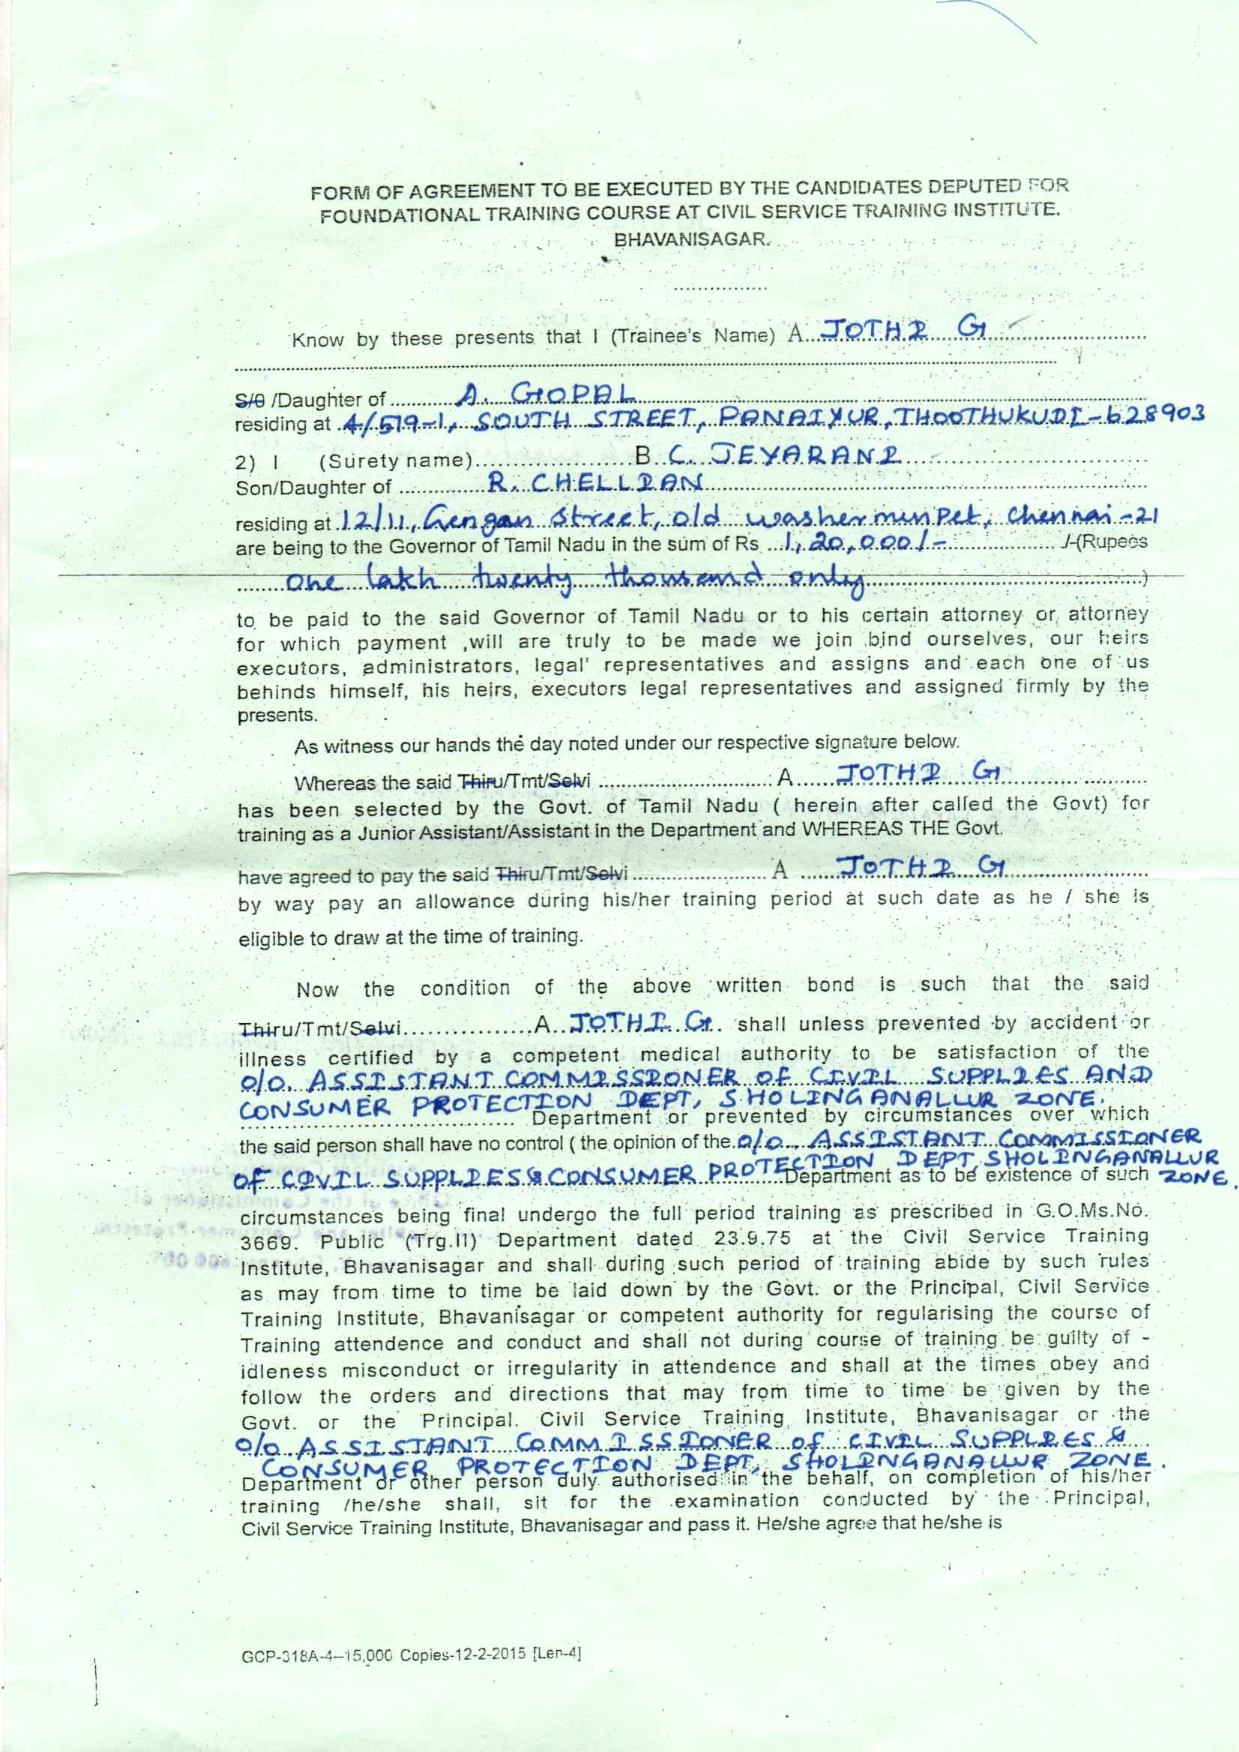 FORM OF AGREEMENT TO BE EXECUTED BY THE CANDIDATES DEPUTED FOR
FOUNDATIONAL TRAINING COURSE AT CIVIL SERVICE TRAINING INSTITUTE.
BHAVANISAGAR.
..................
Know by these presents that I (Trainee's Name) A...JOTHI G..................
S/O /Daughter of ............A. GOPAL..................
residing at .4/519-1, SOUTH STREET, PANAIYUR, THOOTHUKUDI-628903
2) I (Surety name)..................B C. JEYARANI..................
Son/Daughter of ............R. CHELLIAN..................
residing at 12/11, Gengan Street, old washerminpet, Chennai -21
are being to the Governor of Tamil Nadu in the sum of Rs ...1,20,000/-............ /-(Rupees
.......one lakh twenty thousand only..................)
to be paid to the said Governor of Tamil Nadu or to his certain attorney or attorney
for which payment ,will are truly to be made we join bind ourselves, our heirs
executors, administrators, legal' representatives and assigns and each one of us
behinds himself, his heirs, executors legal representatives and assigned firmly by the
presents.
As witness our hands the day noted under our respective signature below.
Whereas the said Thiru/Tmt/Selvi ..................A......JOTHI G..................
has been selected by the Govt. of Tamil Nadu ( herein after called the Govt) for
training as a Junior Assistant/Assistant in the Department and WHEREAS THE Govt.
have agreed to pay the said Thiru/Tmt/Selvi ..................A ......JOTHI G..................
by way pay an allowance during his/her training period at such date as he / she is
eligible to draw at the time of training.
Now the condition of the above written bond is such that the said
Thiru/Tmt/Selvi................A..JOTHI G.. shall unless prevented by accident or
illness certified by a competent medical authority to be satisfaction of the
O/O. ASSISTANT COMMISSIONER OF CIVIL SUPPLIES AND
CONSUMER PROTECTION DEPT, SHOLINGANALLUR ZONE.
.................. Department or prevented by circumstances over which
the said person shall have no control ( the opinion of the O/O. ASSISTANT COMMISSIONER
OF CIVIL SUPPLIES & CONSUMER PROTECTION DEPT SHOLINGANALLUR
Department as to be existence of such ZONE.
circumstances being final undergo the full period training as prescribed in G.O.Ms.No.
3669. Public (Trg.II) Department dated 23.9.75 at the Civil Service Training
Institute, Bhavanisagar and shall during such period of training abide by such rules
as may from time to time be laid down by the Govt. or the Principal, Civil Service
Training Institute, Bhavanisagar or competent authority for regularising the course of
Training attendence and conduct and shall not during course of training be guilty of -
idleness misconduct or irregularity in attendence and shall at the times obey and
follow the orders and directions that may from time to time be given by the
Govt. or the Principal. Civil Service Training Institute, Bhavanisagar or the
O/O ASSISTANT COMMISSIONER OF CIVIL SUPPLIES &
CONSUMER PROTECTION DEPT, SHOLINGANALLUR ZONE.
Department or other person duly authorised in the behalf, on completion of his/her
training /he/she shall, sit for the examination conducted by the Principal,
Civil Service Training Institute, Bhavanisagar and pass it. He/she agree that he/she is
GCP-318A-4-15,000 Copies-12-2-2015 [Len-4]